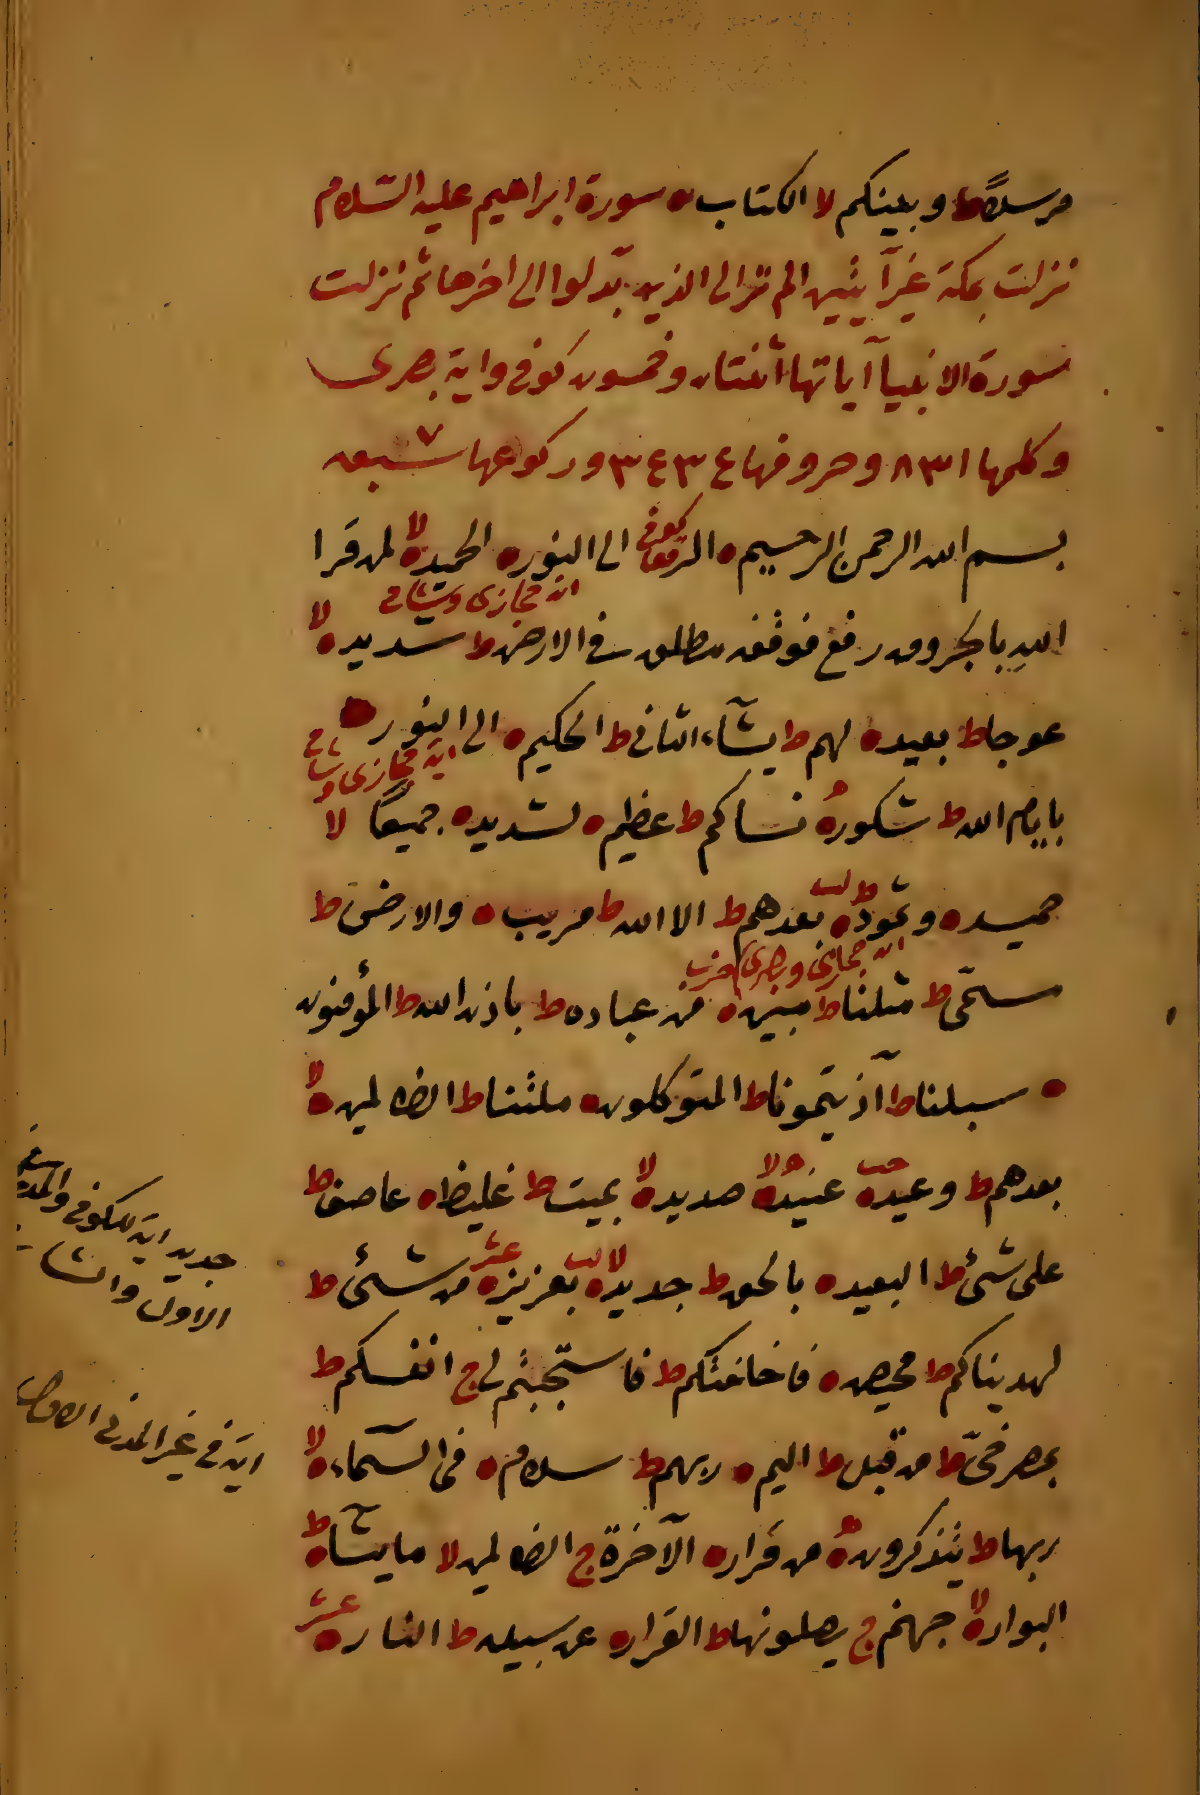 مرسلاً ط وبينكم لا الكتاب ه سورة ابراهيم عليه السّلام
نزلت بمكة غير آيتين الم تر الى الذين بدّلوا الى اخرها ثم نزلت
سورة الانبيآ آياتها اثنتان وخمسون كوفى واية بصرى
وكلمها ٨٣١ وحروفها ٣٤٣٤ وركوعها سبعه ٧
بسم الله الرحمن الرحيم ه الر كوفى الى النور ه الحميد ه لا لمن قرا
اية حجازى وشامى
الله بالجر ومن رفع فوقفه مطلق فى الارض ط شديد ه لا
عوجا ط بعيد ه لهم ط يشآء الثانى ط الحكيم ه الى النور ه
اية حجازى وشامى
بايام الله ط شكور ه نساكم ط عظيم ه لشديد ه جميعًا لا
حميد ه وثمود ه ط لب بعدهم ط الا الله ط مريب ه والارض ط
اية حجازى وبصرى حزب
مسمّى ط مثلنا ط مبين ه من عباده ط باذن الله ط المؤمنون
ه سبلنا ط آذيتمونا ط المتوكلون ه ملتنا ط الظالمين ه لا
بعدهم ط وعيد ه حب عنيد ه لا صديد ه لا بميت ط غليظ ه عاصف ط
على شئ ط البعيد ه بالحق ط جديد ه لا لب بعزيز ه عشر من شئ ط
لهديناكم ط محيص ه فاخلفتكم ط فاستجبتم لى ج انفسكم ط
بمصرخىّ ط من قبل ط اليم ه ربهم ط سلام ه فى السّمآء ه لا
ربها ط يتذكرون ه من قرار ه الآخرة ج الظالمين لا ما يشآء ه ط
البوار ه لا جهنم ج يصلونها ط القرار ه عن سبيله ط النار ه عشر
جديد اية للكوفى والمدنى
الاول والشامى
اية فى غير المدنى الاول